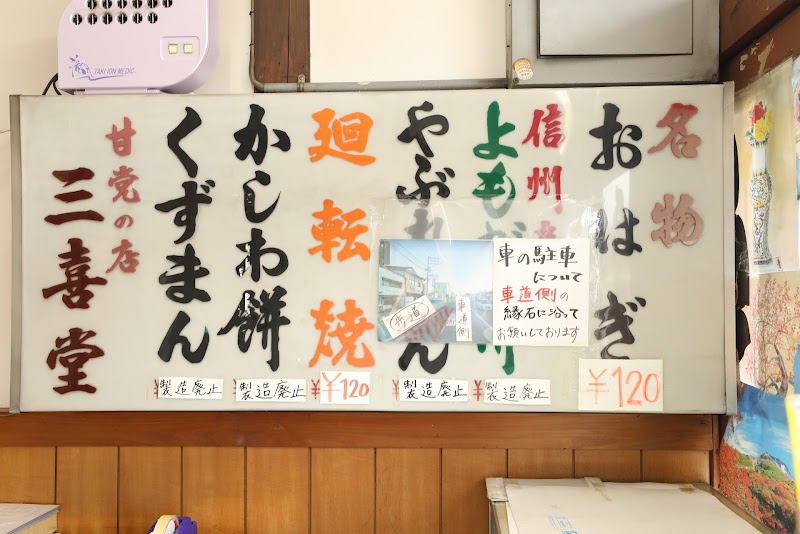 TAKI ION MEDIC
名物
おはぎ
¥120
信州
よも
¥製造廃止
やぶれ
ん
¥製造廃止
廻転焼
¥120
かしわ餅
¥製造廃止
くずまん
¥製造廃止
甘党の店
三喜堂
車の駐車
について
車道側の
縁石に沿って
お願いしております
歩道
車道側